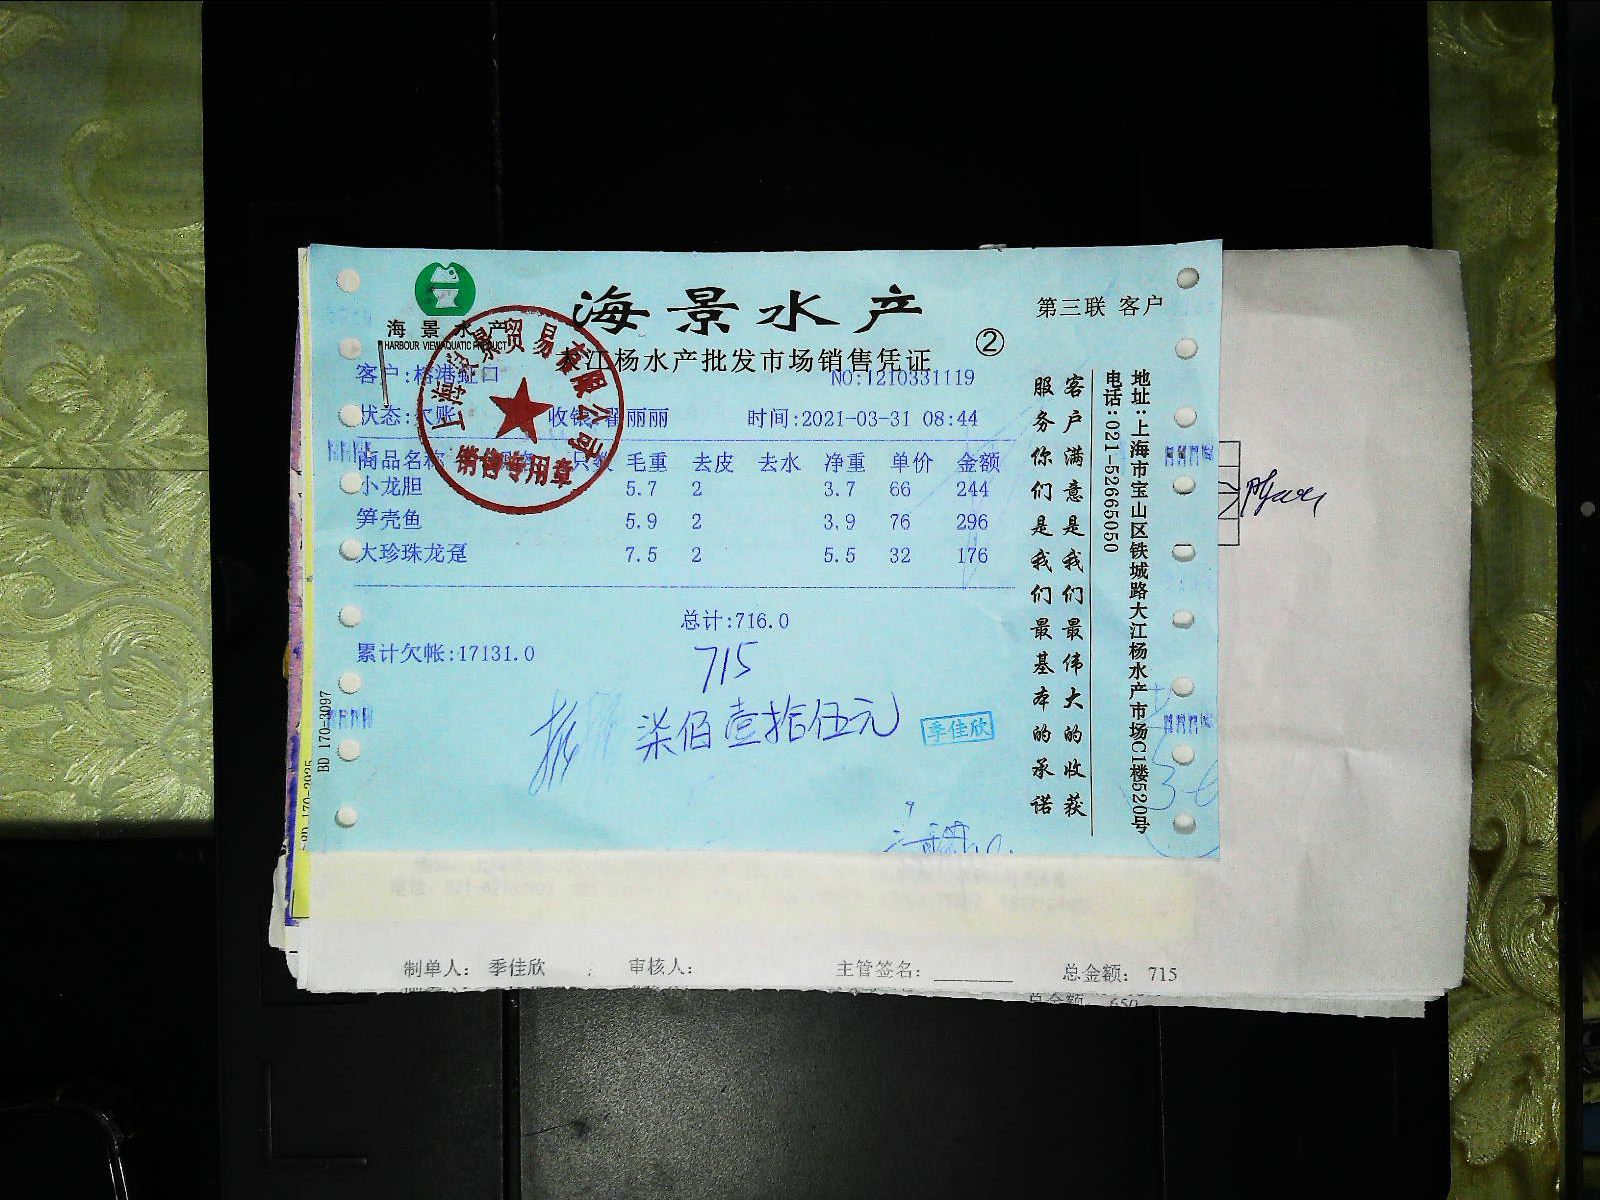 海景水产
HARBOUR VIEW AQUATIC PRODUCT
海景水产
第三联 客户
②
江杨水产批发市场销售凭证
客户:榕港虹口
NO:1210331119
状态:欠账 收银 丽丽 时间:2021-03-31 08:44
上海海景贸易有限公司
销售专用章
商品名称 只数 毛重 去皮 去水 净重 单价 金额
小龙胆 5.7 2 3.7 66 244
笋壳鱼 5.9 2 3.9 76 296
大珍珠龙趸 7.5 2 5.5 32 176
总计:716.0
累计欠帐:17131.0
715
柒佰壹拾伍元
季佳欣
客户满意是我们最伟大的收获
服务你们是我们最基本的承诺
地址:上海市宝山区铁城路大江杨水产市场C1楼520号
电话:021-52665050
BD 170-3097
制单人: 季佳欣 审核人: 主管签名: 总金额: 715
总金额: 650